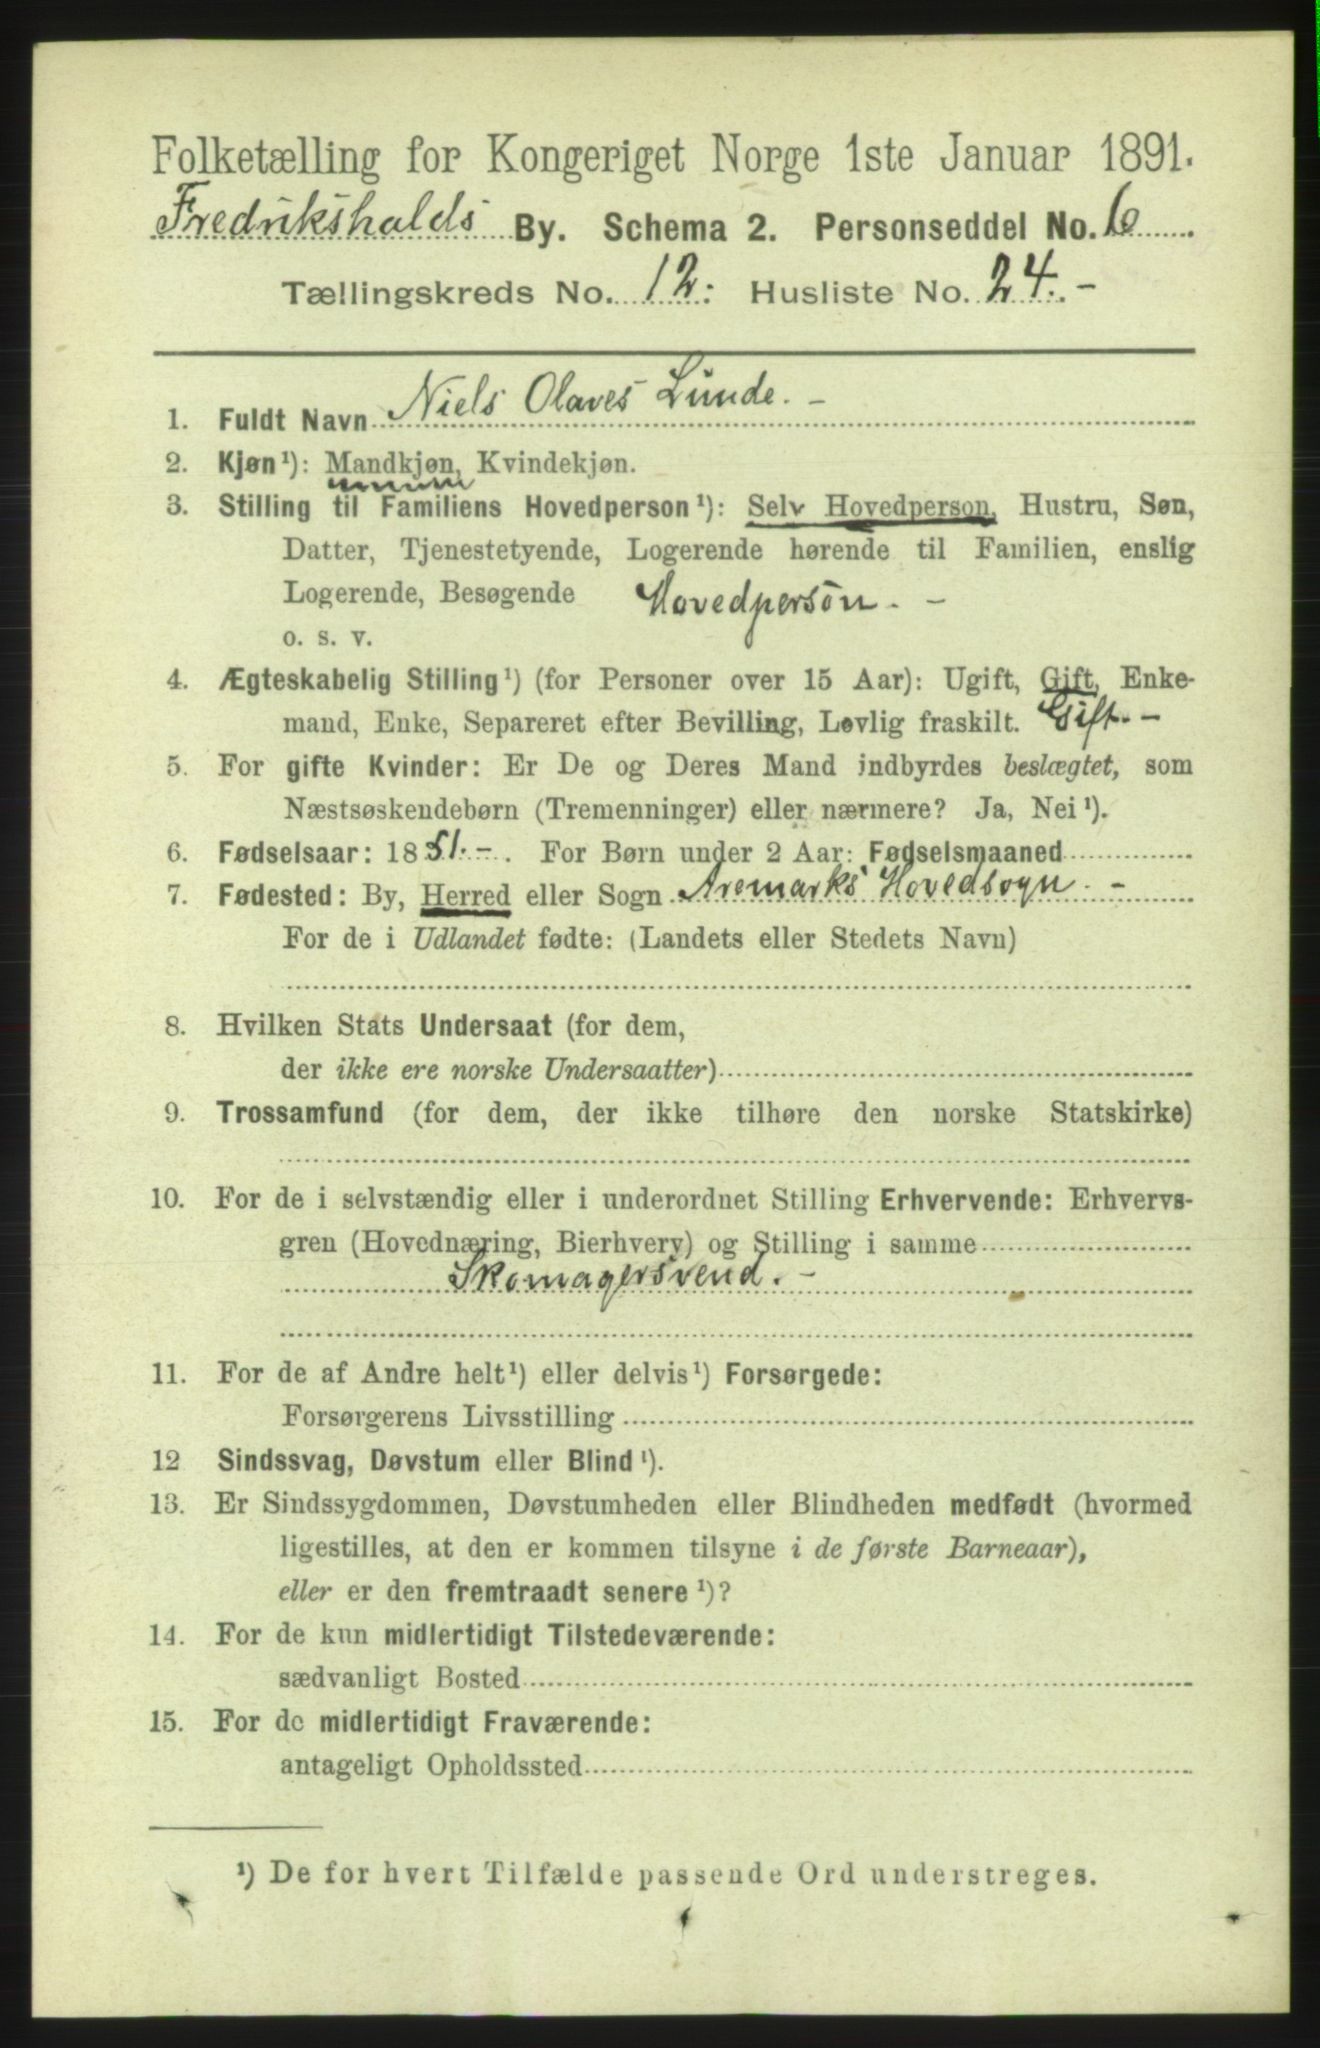 Folketælling for Kongeriget Norge 1ste Januar 1891.
Fredrikshalds By. Schema 2. Personseddel No. 6
Tællingskreds No. 12. Husliste No. 24. -
1. Fuldt Navn Niels Olaves Lunde. -
2. Kjøn¹): Mandkjøn, Kvindekjøn.
3. Stilling til Familiens Hovedperson¹): Selv Hovedperson, Hustru, Søn,
Datter, Tjenestetyende, Logerende hørende til Familien, enslig
Logerende, Besøgende Hovedperson. -
o. s. v.
4. Ægteskabelig Stilling¹) (for Personer over 15 Aar): Ugift, Gift, Enke-
mand, Enke, Separeret efter Bevilling, Lovlig fraskilt. Gift. -
5. For gifte Kvinder: Er De og Deres Mand indbyrdes beslægtet, som
Næstsøskendebørn (Tremenninger) eller nærmere? Ja, Nei¹).
6. Fødselsaar: 1851. - . For Børn under 2 Aar: Fødselsmaaned
7. Fødested: By, Herred eller Sogn Aremarks Hovedsogn. -
For de i Udlandet fødte: (Landets eller Stedets Navn)
8. Hvilken Stats Undersaat (for dem,
der ikke ere norske Undersaatter)
9. Trossamfund (for dem, der ikke tilhøre den norske Statskirke)
10. For de i selvstændig eller i underordnet Stilling Erhvervende: Erhvervs-
gren (Hovednæring, Bierhverv) og Stilling i samme
Skomagersvend. -
11. For de af Andre helt¹) eller delvis¹) Forsørgede:
Forsørgerens Livsstilling
12 Sindssvag, Døvstum eller Blind¹).
13. Er Sindssygdommen, Døvstumheden eller Blindheden medfødt (hvormed
ligestilles, at den er kommen tilsyne i de første Barneaar),
eller er den fremtraadt senere¹)?
14. For de kun midlertidigt Tilstedeværende:
sædvanligt Bosted
15. For de midlertidigt Fraværende:
antageligt Opholdssted
¹) De for hvert Tilfælde passende Ord understreges.